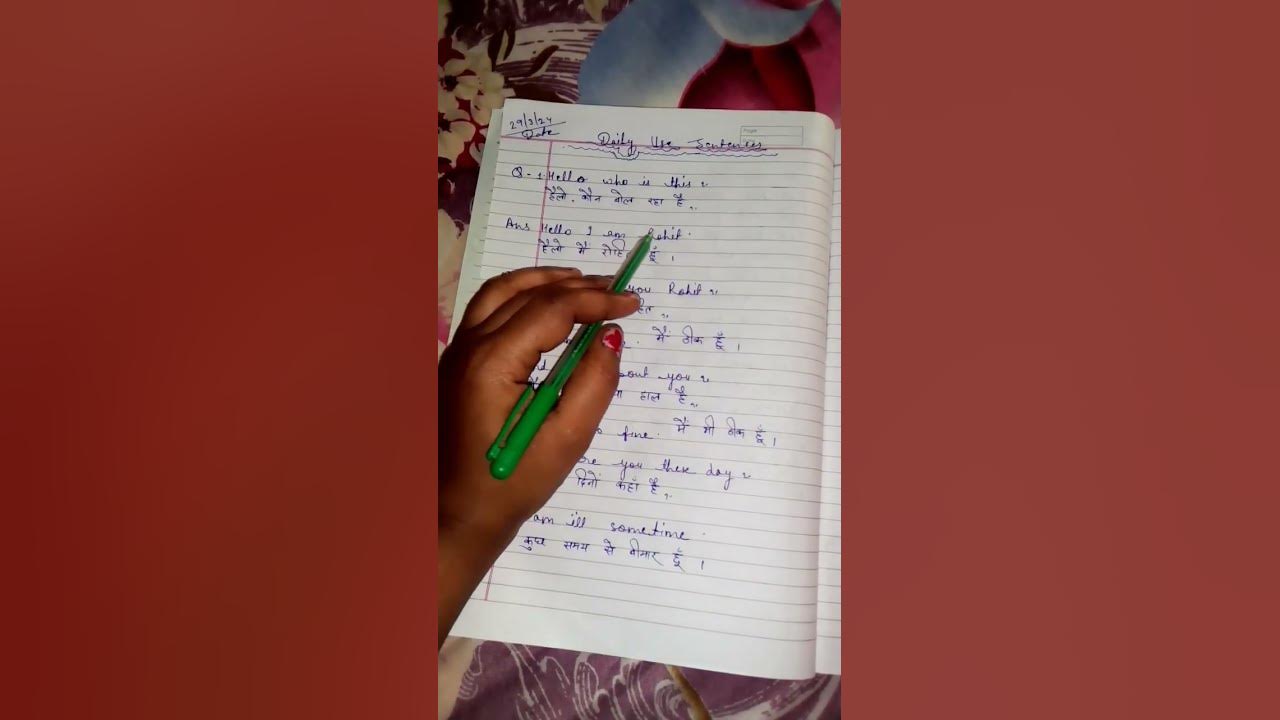 29/3/24
Date
Daily Use Sentences
Q-1 Hello who is this?
हैलो. कौन बोल रहा है?
Ans Hello I am Rohit.
हैलो मैं रोहि हूँ।
you Rohit?
मैं ठीक हूँ।
about you?
हाल है?
fine. मैं भी ठीक हूँ।
you these day?
दिनों कहाँ है?
am ill sometime.
कुछ समय से बीमार हूँ।